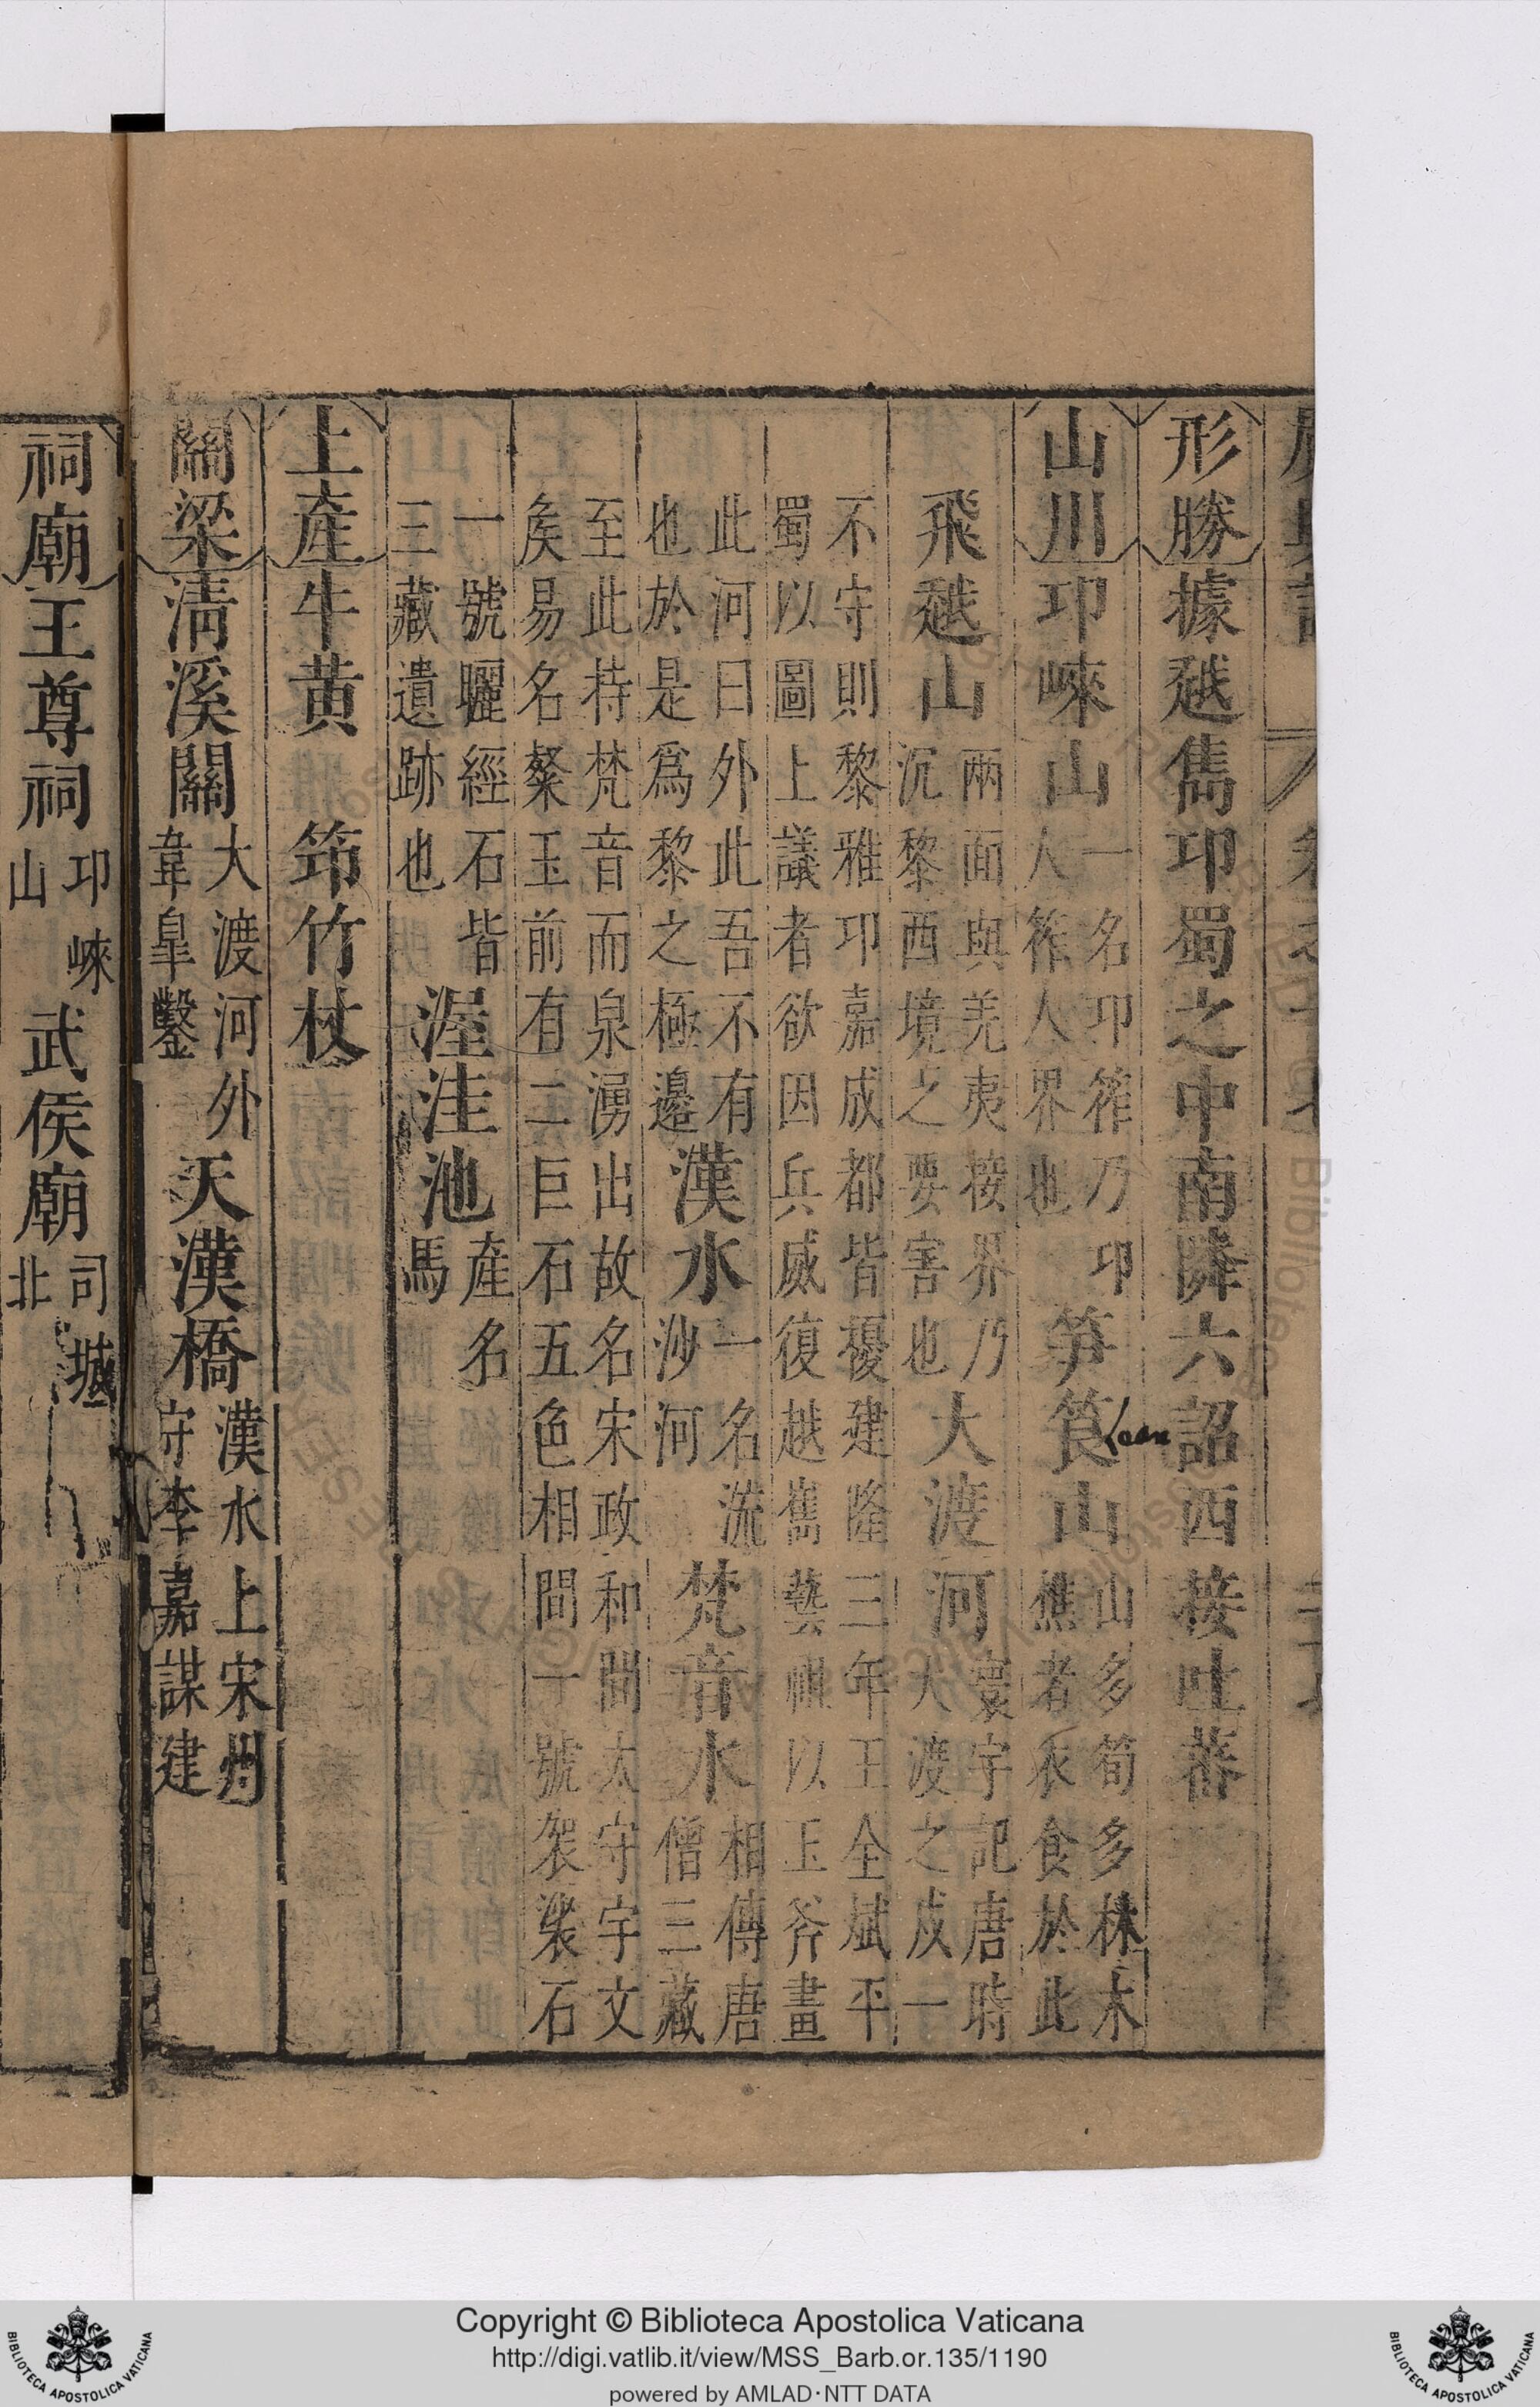 形勝據越雋卭蜀之中南隣六詔西接吐蕃
山川卭崍山
一名卭筰乃卭
人筰人界也
笋筤山
山多筍多林木
樵者衣食於此
飛越山
兩面與羌夷接界乃
沉黎西境之要害也
大渡河
寰宇記唐時
大渡之戍一
不守則黎雅卭嘉成都皆擾建隆三年王全斌平
蜀以圖上議者欲因兵威復越嶲藝祖以玉斧畫
此河曰外此吾不有
也於是爲黎之極邊
漢水
一名流
沙河
梵音水
相傳唐
僧三藏
至此持梵音而泉湧出故名宋政和間太守宇文
矦易名粲玉前有二巨石五色相間一號袈裟石
一號曬經石皆
三藏遺跡也
渥洼池
產名
馬
土產牛黄 筇竹杖
關梁清溪關
大渡河外
韋臯鑿
天漢橋
漢水上宋州
守李嘉謀建
祠廟王尊祠
卭崍
山
武侯廟
司城
北
Copyright © Biblioteca Apostolica Vaticana
http://digi.vatlib.it/view/MSS_Barb.or.135/1190
powered by AMLAD·NTT DATA
BIBLIOTECA APOSTOLICA VATICANA
BIBLIOTECA APOSTOLICA VATICANA